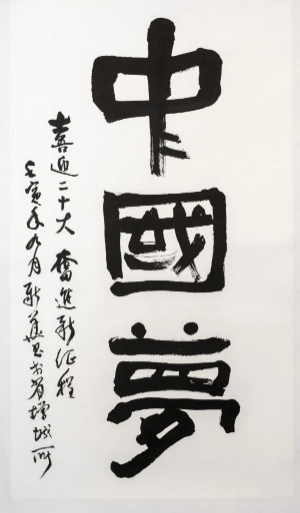 中國夢
喜迎二十大 奮進新征程
壬寅年九月新華書於增城所